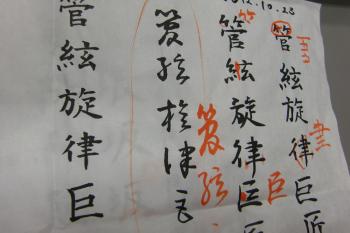 2012.10.28
管絃旋律巨匠
管絃旋律巨匠
管絃旋律巨
管絃旋律巨
管絃
巨